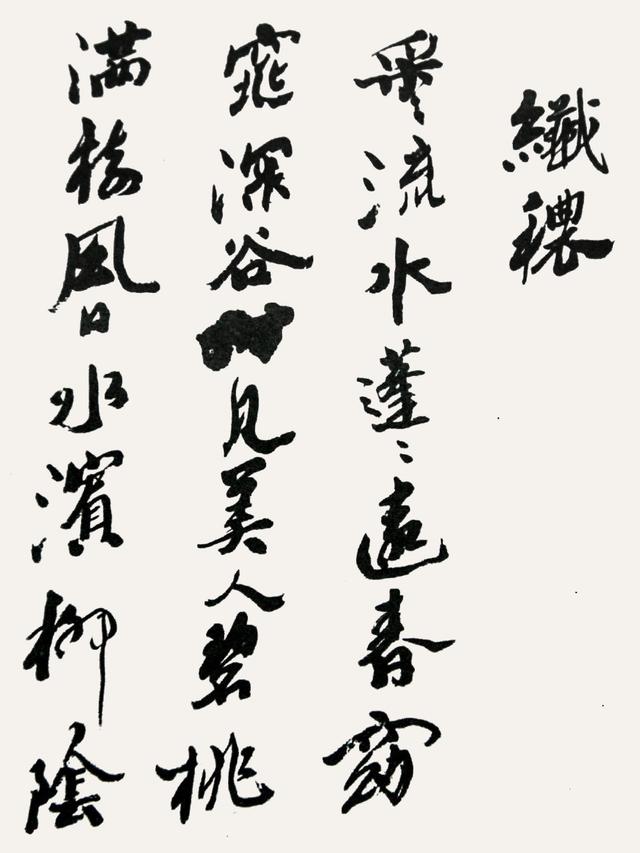 纖穠
采〻流水蓬〻遠春窈
窕深谷見美人碧桃
滿樹風日水濱柳陰